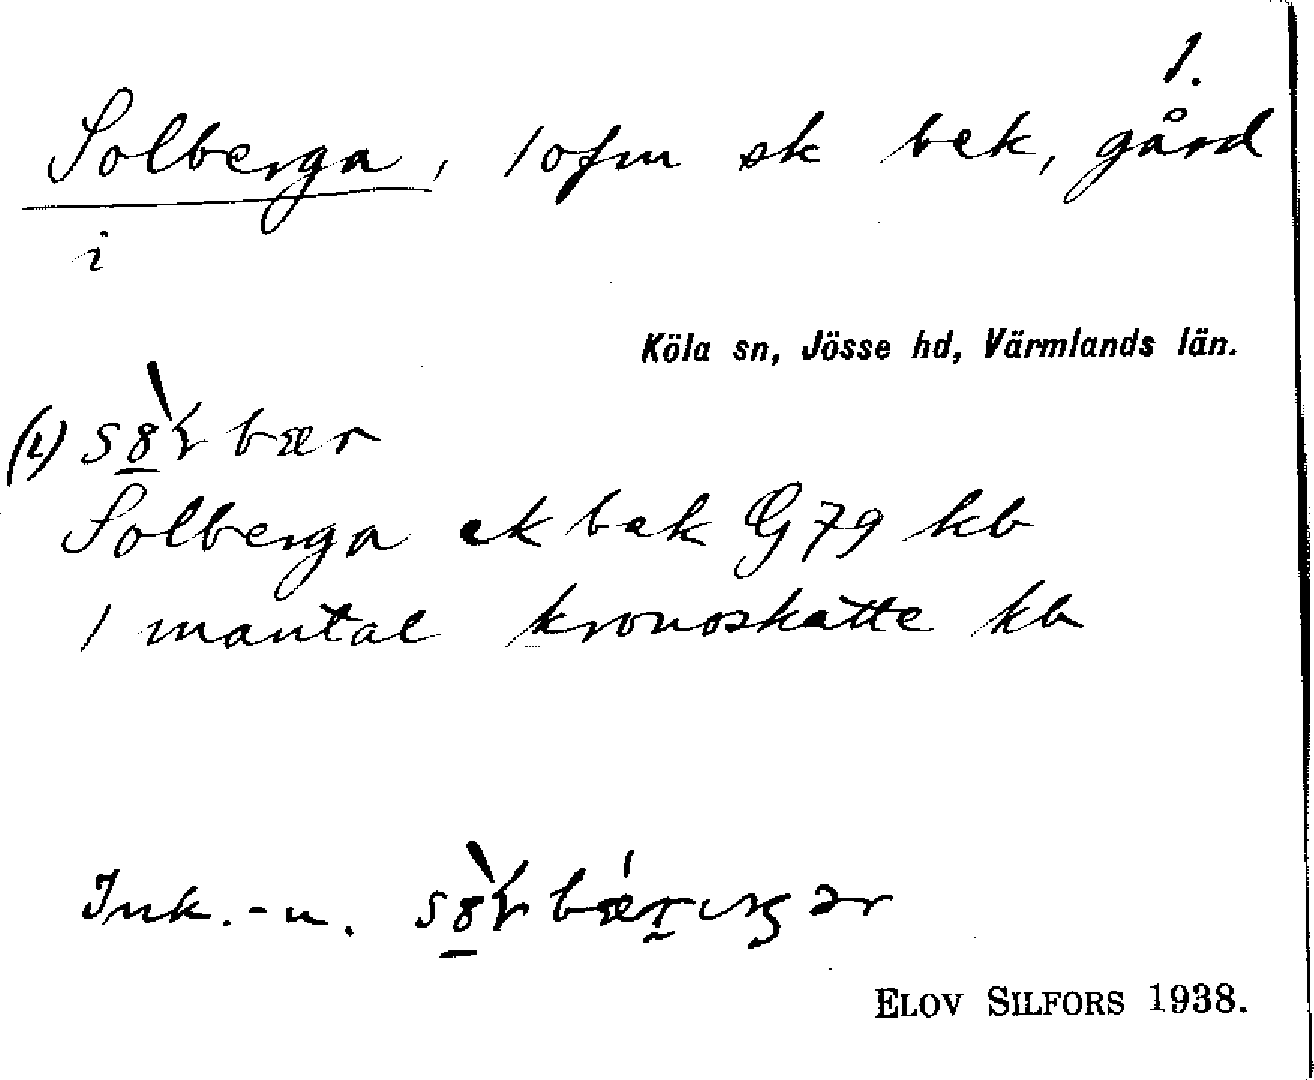 1.
Solberga, 1 ofm sk bek, gård
i
Köla sn, Jösse hd, Värmlands län.
(1)
Solberga sk bek G 79 kb
1 mantal kronoskatte kb
Ink.-n.
ELOV SILFORS 1938.